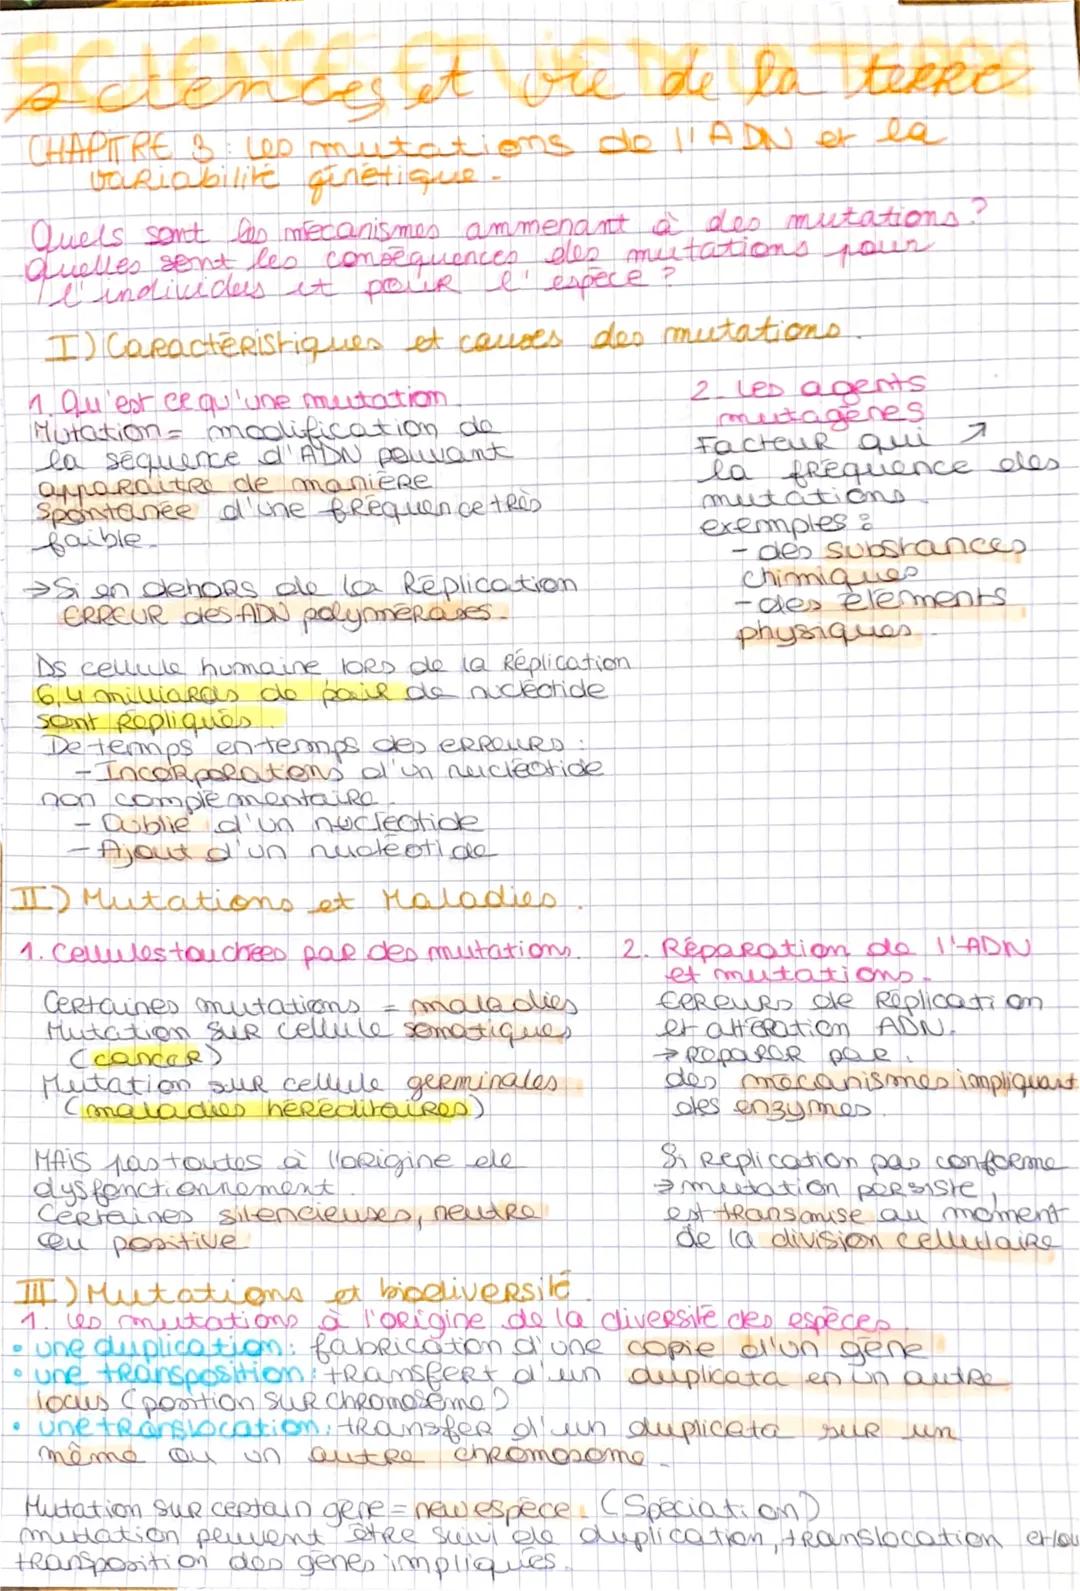 Sciences et vie de la terre
CHAPITRE 3 : les mutations de l'ADN et la
variabilité génétique.
Quels sont les mécanismes ammenant à des mutations ?
Quelles sont les conséquences des mutations pour
l'individus et pour l'espèce ?
I) Caractéristiques et causes des mutations.
1. Qu'est ce qu'une mutation
Mutation = modification de
la séquence d'ADN pouvant
apparaitre de manière
spontanée d'une fréquence très
faible.
→ Si en dehors de la Réplication
ERREUR des ADN polymérases.
Ds cellule humaine lors de la Réplication
6,4 milliards de pair de nucléotide
sont Répliqués.
De temps en temps des erreurs :
- Incorporations d'un nucléotide
non complémentaire.
- Oublie d'un nucléotide
- Ajout d'un nucléotide
2. Les agents
mutagènes
Facteur qui ↗
la fréquence des
mutations.
exemples :
- des substances
chimiques
- des éléments
physiques.
II) Mutations et Maladies.
1. Cellules touchées par des mutations.
Certaines mutations = maladies
Mutation sur cellule somatiques
(cancer)
Mutation sur cellule germinales
(maladies héréditaires)
MAIS pas toutes à l'origine de
dysfonctionnement.
Certaines silencieuses, neutre
ou positive
2. Réparation de l'ADN
et mutations.
Erreurs de Réplication
et altération ADN.
→ réparer par.
des mécanismes impliquant
des enzymes.
Si Réplication pas conforme
→ mutation persiste,
est transmise au moment
de la division cellulaire
III) Mutations et biodiversité.
1. les mutations à l'origine de la diversité des espèces.
• une duplication : fabrication d'une copie d'un gène
• une transposition : transfert d'un duplicata en un autre
locus (position sur chromosome)
• une translocation : transfer d'un duplicata sur un
même ou un autre chromosome.
Mutation sur certain gène = new espèce. (Spéciation)
mutation peuvent être suivi de duplication, translocation et/ou
transposition des gènes impliqués.